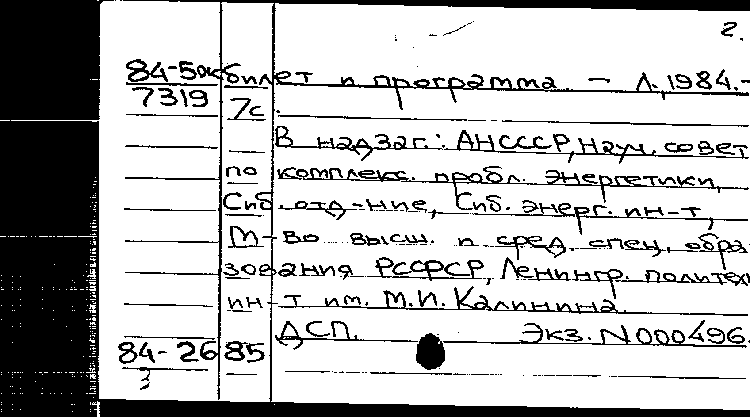 2.
84-5ок билет и программа. - Л., 1984.-
7319 7с.
В надзаг.: АНСССР, Науч. совет
по комплекс. пробл. энергетики,
Сиб. отд-ние, Сиб. энерг. ин-т,
М-во высш. и сред. спец. обра
зования РСФСР, Ленингр. политех
ин-т им. М.И. Калинина.
ДСП. Экз. N000496.
84-26 85
3